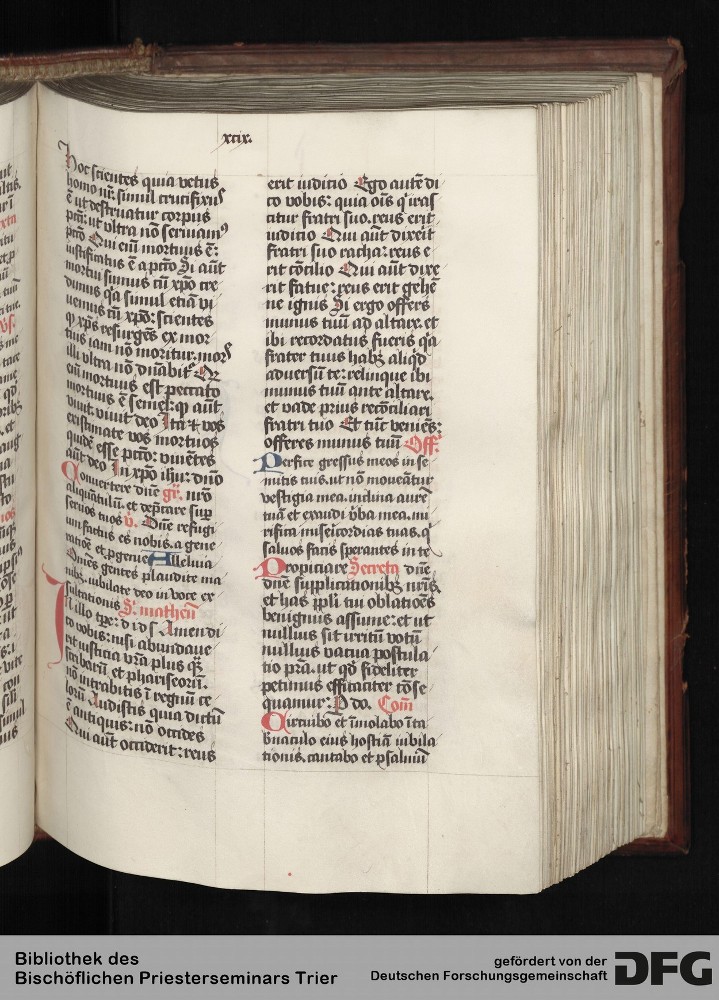 xcix.
Hoc scientes quia vetus
homo nr̄ simul crucifixus
ē ut destruatur corpus
pcti ut ultra nō seruiam⁹
pctō Qui eni mortuus ē:
iustificatus ē a pctō Si aūt
mortui sumus cū xpō cre
dimus q̄a simul etiā vi
uemus cū xpō: scientes
ꝙ xp̄s resurgens ex mor
tuis iam nō moritur. mors
illi ultra nō dn̄abit᷑ Qꝛ
eni mortuus est peccato
mortuus ē semel: ꝙ aūt
viuit. viuit deo Ita ⁊ vos
existimate vos mortuos
quidē esse pctō: viuētes
aūt deo In xpō ihū: dn̄o
Conuertere dn̄e gr̄. nr̄o
aliquātulū. et dep̄care sup̄
seruos tuos v̄. Dn̄e refugi
um factus es nobis. a gene
ratōe et ꝓgenie Alleluia
Omēs gentes plaudite ma
nibꝫ. iubilate deo in voce ex
sultationis S. matheū
In illo tp̄r: d i d s Amen di
co vobis: nisi abundaue
rit iusticia vr̄a plus qꝫ
scribarū et phariseorū.
nō intrabitis ī regnū ce
lorū Audistis quia dictū
ē antiquis: nō occides
Qui aūt occiderit: reus
erit iudicio Ego autē di
co vobis: quia ois q̄ iras
citur fratri suo. reus erit
iudicio Qui aūt dixerit
fratri suo racha: reus e
rit cōcilio Qui aūt dixe
rit fatue: reus erit gehē
ne ignis Si ergo offers
munus tuū ad altare. et
ibi recordatus fueris q̄a
frater tuus habꝫ aliqd
aduersū te: relinque ibi
munus tuū ante altare.
et vade prius recōciliari
fratri tuo Et tūc veniēs:
offeres munus tuū Off.
Perfice gressus meos in se
mitis tuis. ut nō moueātur
vestigia mea. inclina aurē
tuā et exaudi v̄ba mea. mi
rifica misericordias tuas. q̄
saluos facis sperantes in te
Propiciare Secreta dn̄e
dn̄e supplicationibꝫ nr̄is.
et has ppli tui oblatiōes
benignus assume: et ut
nullius sit irritū votū
nullius vacua postula
tio pr̄a. ut qd̄ fideliter
petimus efficaciter cōse
quamur: P do. Com̄
Circuibo et īmolabo ī ta
b̄naculo eius hostiā iubila
tionis. cantabo et psalmū
Bibliothek des
Bischöflichen Priesterseminars Trier
gefördert von der
Deutschen Forschungsgemeinschaft
DFG